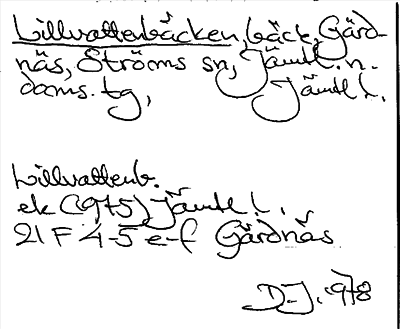 Lillvattenbäcken, bäck, Gärd-
näs, Ströms sn, Jämtl. n.
doms. tg, Jämtl l.
Lillvattenb.
ek (1975) Jämtl l.
21 F 4-5 e-f Gärdnäs
D-J. 1978